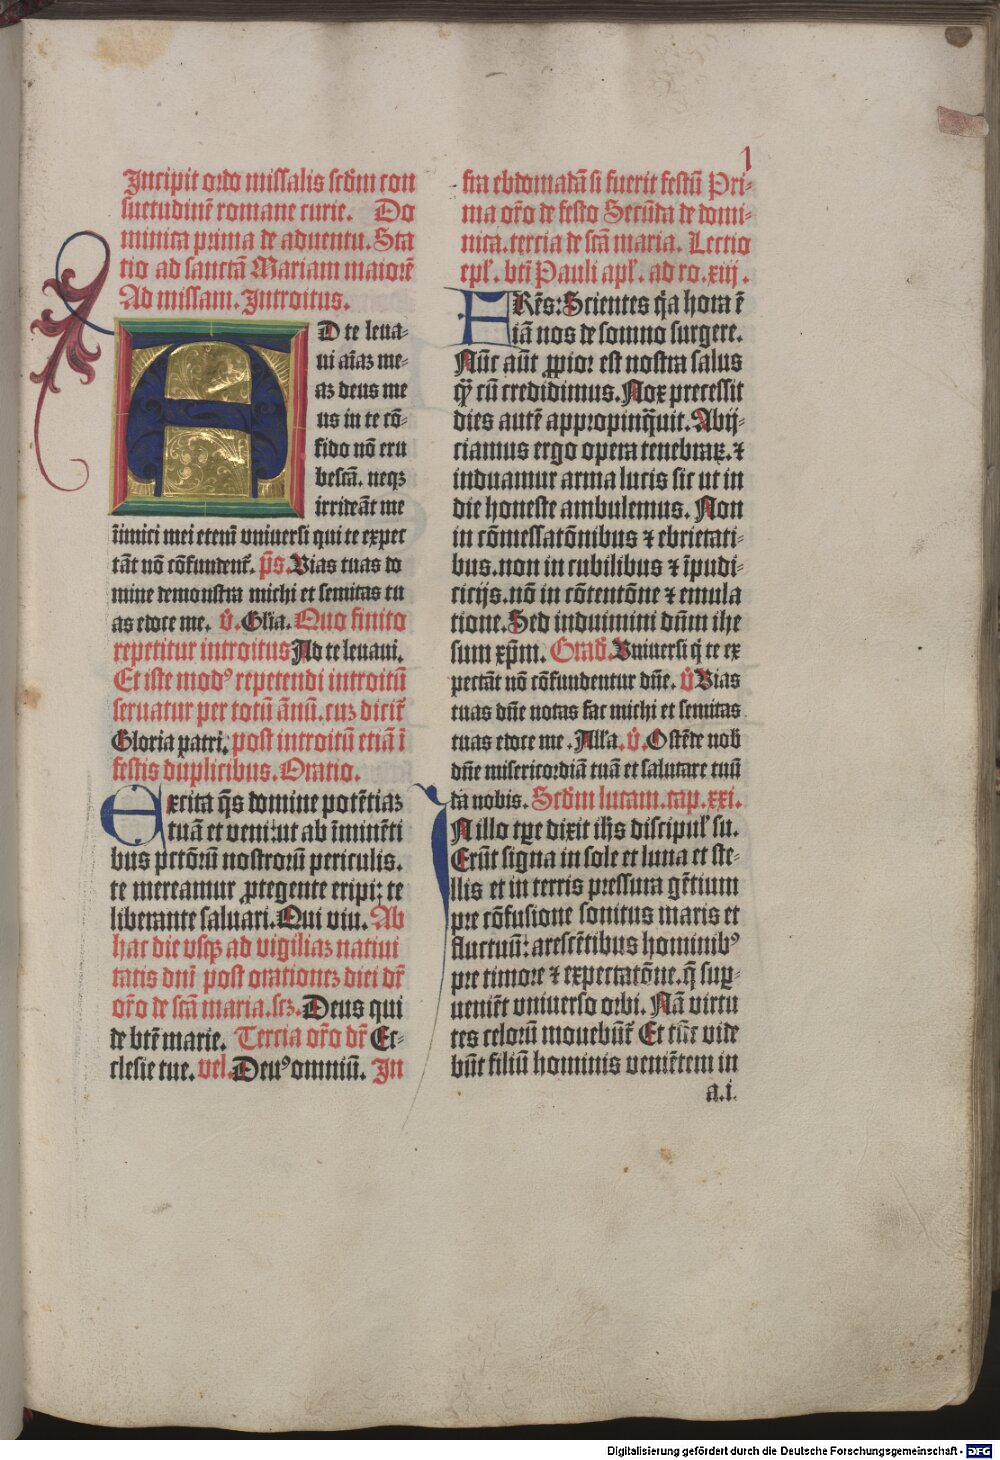 1
Incipit ordo missalis scdm con
suetudinē romane curie. Do
minica prima de aduentu. Sta
tio ad sanctā Mariam maiorē
Ad missam. Introitus.
AD te leua-
ui aīaz me-
az deus me
us in te cō-
fido nō eru
bescā. neqz
irrideāt me
īimici mei etenī vniuersi qui te expec
tāt nō cōfundent̄. p̄s. Vias tuas do
mine demonstra michi et semitas tu
as edoce me. v̄. Glia. Quo finito
repetitur introitus Ad te leuaui.
Et iste modꝰ repetendi introitū
seruatur per totū ānū. cuz dicit̄
Gloria patri. post introitū etiā ī
festis duplicibus. Oratio.
Excita q̄s domine potētiaz
tuā et veni: ut ab īminēti
bus pctōrū nostrorū periculis.
te mereamur ꝓtegente eripi: te
liberante saluari. Qui viu. Ab
hac die vsqꝫ ad vigiliaz natiui
tatis dnī post orationez diei dr̄
or̄o de scā maria. scz. Deus qui
de btē marie. Tercia or̄o dr̄ Ec-
clesie tue. vel. Deuꝰ omniū. In
fra ebdomadā si fuerit festū Pri-
ma or̄o de festo Secūda de domi-
nica. tercia de scā maria. Lectio
epl̄. bti Pauli apl̄. ad ro. xiij.
FRēs: Scientes q̄a hora ē
iā nos de somno surgere.
Nūc aūt ꝓpior est nostra salus
q̄ cū credidimus. Nox precessit
dies autē appropinq̄uit. Abij-
ciamus ergo opera tenebraꝝ. ⁊
induamur arma lucis sic ut in
die honeste ambulemus. Non
in cōmessatōnibus ⁊ ebrietati-
bus. non in cubilibus ⁊ īpudi-
cicijs. nō in cōtentōne ⁊ emula
tione. Sed induimini dūm ihe
sum xp̄m. Grad̄. Vniuersi q̄ te ex
pectāt nō cōfundentur dn̄e. v̄ Vias
tuas dn̄e notas fac michi et semitas
tuas edoce me. Alla. v̄. Ostēde nob̄
dn̄e misericordiā tuā et salutare tuū
da nobis. Scdm lucam. cap. xxi.
IN illo tp̄e dixit ihs discipul̄ su.
Erūt signa in sole et luna et ste-
llis et in terris pressura gētium
pre cōfusione sonitus maris et
fluctuū: arescētibus hominibꝰ
pre timore ⁊ expectatōne. q̄ suꝑ-
ueniēt vniuerso orbi. Nā virtu
tes celorū mouebūt̄ Et tūc vide
būt filiū hominis veniētem in
a.i.
Digitalisierung gefördert durch die Deutsche Forschungsgemeinschaft - DFG